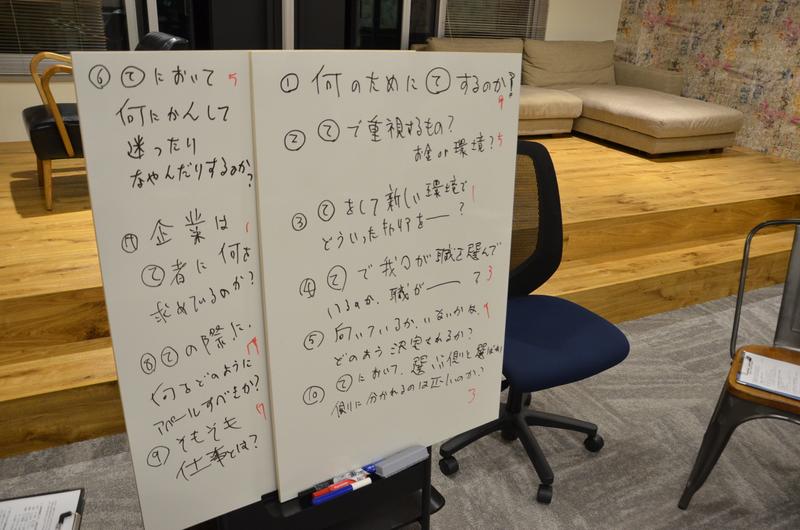 ① 何のために て するのか?
4
② て で重視するもの?
お金 or 環境? 5
③ て をして新しい環境で 1
どういったキャリアを―― ?
④ て で我々が職を選んで
いるのか、職が―― ? 3
⑤ 向いているか、いないかは、 4
どのよう決定されるか?
⑩ て において、選ぶ側と選ばれ
側に分かれるのは正しいのか?
3
⑥ て において 5
何にかんして
迷ったり
なやんだりするのか?
⑦ 企業は 1
て 者に 何を
求めているのか?
⑧ て の際に、
何をどのように
アピールすべきか?
⑨ そもそも 7
仕事とは?